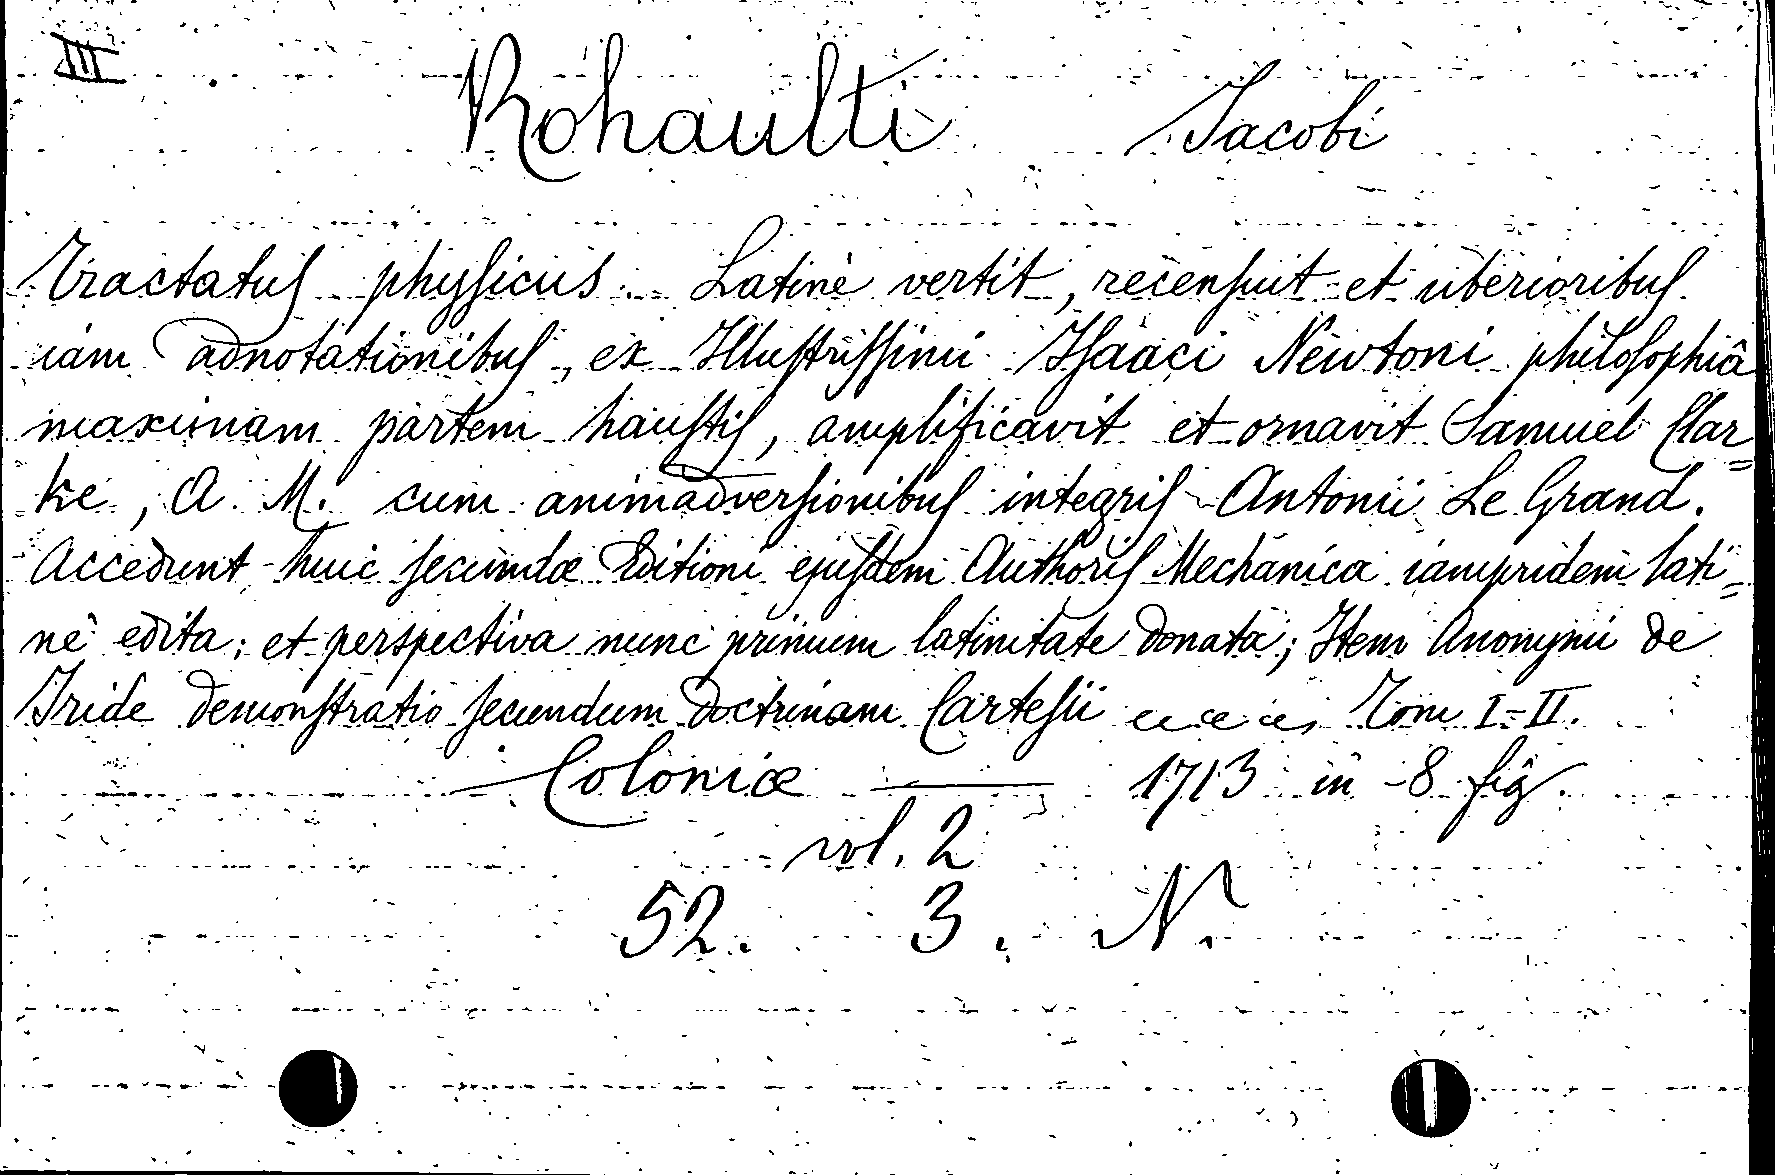 III
Rohaulti Jacobi
Tractatuſ phyſſicus. Latinè vertit, recenſuit et uberioribuſ
iam adnotationibuſ, ex Illuſtriſſimi Iſaaci Newtoni philoſophiâ
maximam partem hauſtiſ, amplificavit et ornavit Samuel Clar=
ke, A. M. cum animadverſionibuſ integriſ Antonii Le Grand.
Accedunt huic ſecundæ Editioni ejuſdem Authoriſ Mechanica iampridem lati=
nè edita; et perspectiva nunc primum latinitate donata; Item Anonymi de
Iride demonſtratio ſecundum doctrinam Carteſii Tom I-II.
Coloniæ — 1713 in -8 fig.
vol. 2
52. 3. N.